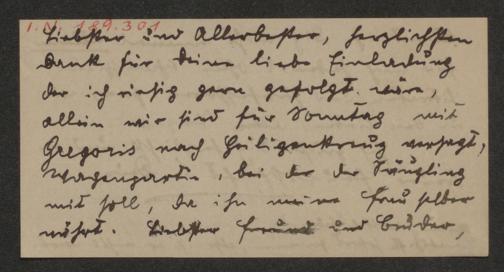 I.N. 189.301
Liebster und Allerbester, herzlichsten
Dank für Deine liebe Einladung
der ich riesig gern gefolgt wäre,
allein wir sind für Sonntag mit
Gregoris nach Heiligenkreuz versagt,
Wagenpartie, bei der der Säugling
mit soll, da ihn meine Frau selber
nährt. Liebster Freund und Bruder,